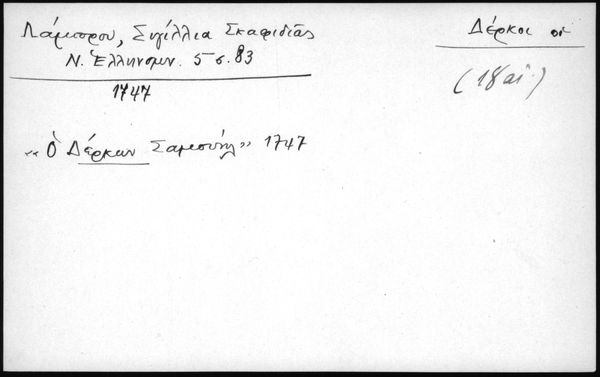 Λάμπρου, Σιγίλλια Σκαφιδιᾶς
Ν. Ἑλληνομν. 5 σ. 83
1747
Δέρκοι οἱ
(18 αἰ.)
«Ὁ Δέρκων Σαμουήλ» 1747